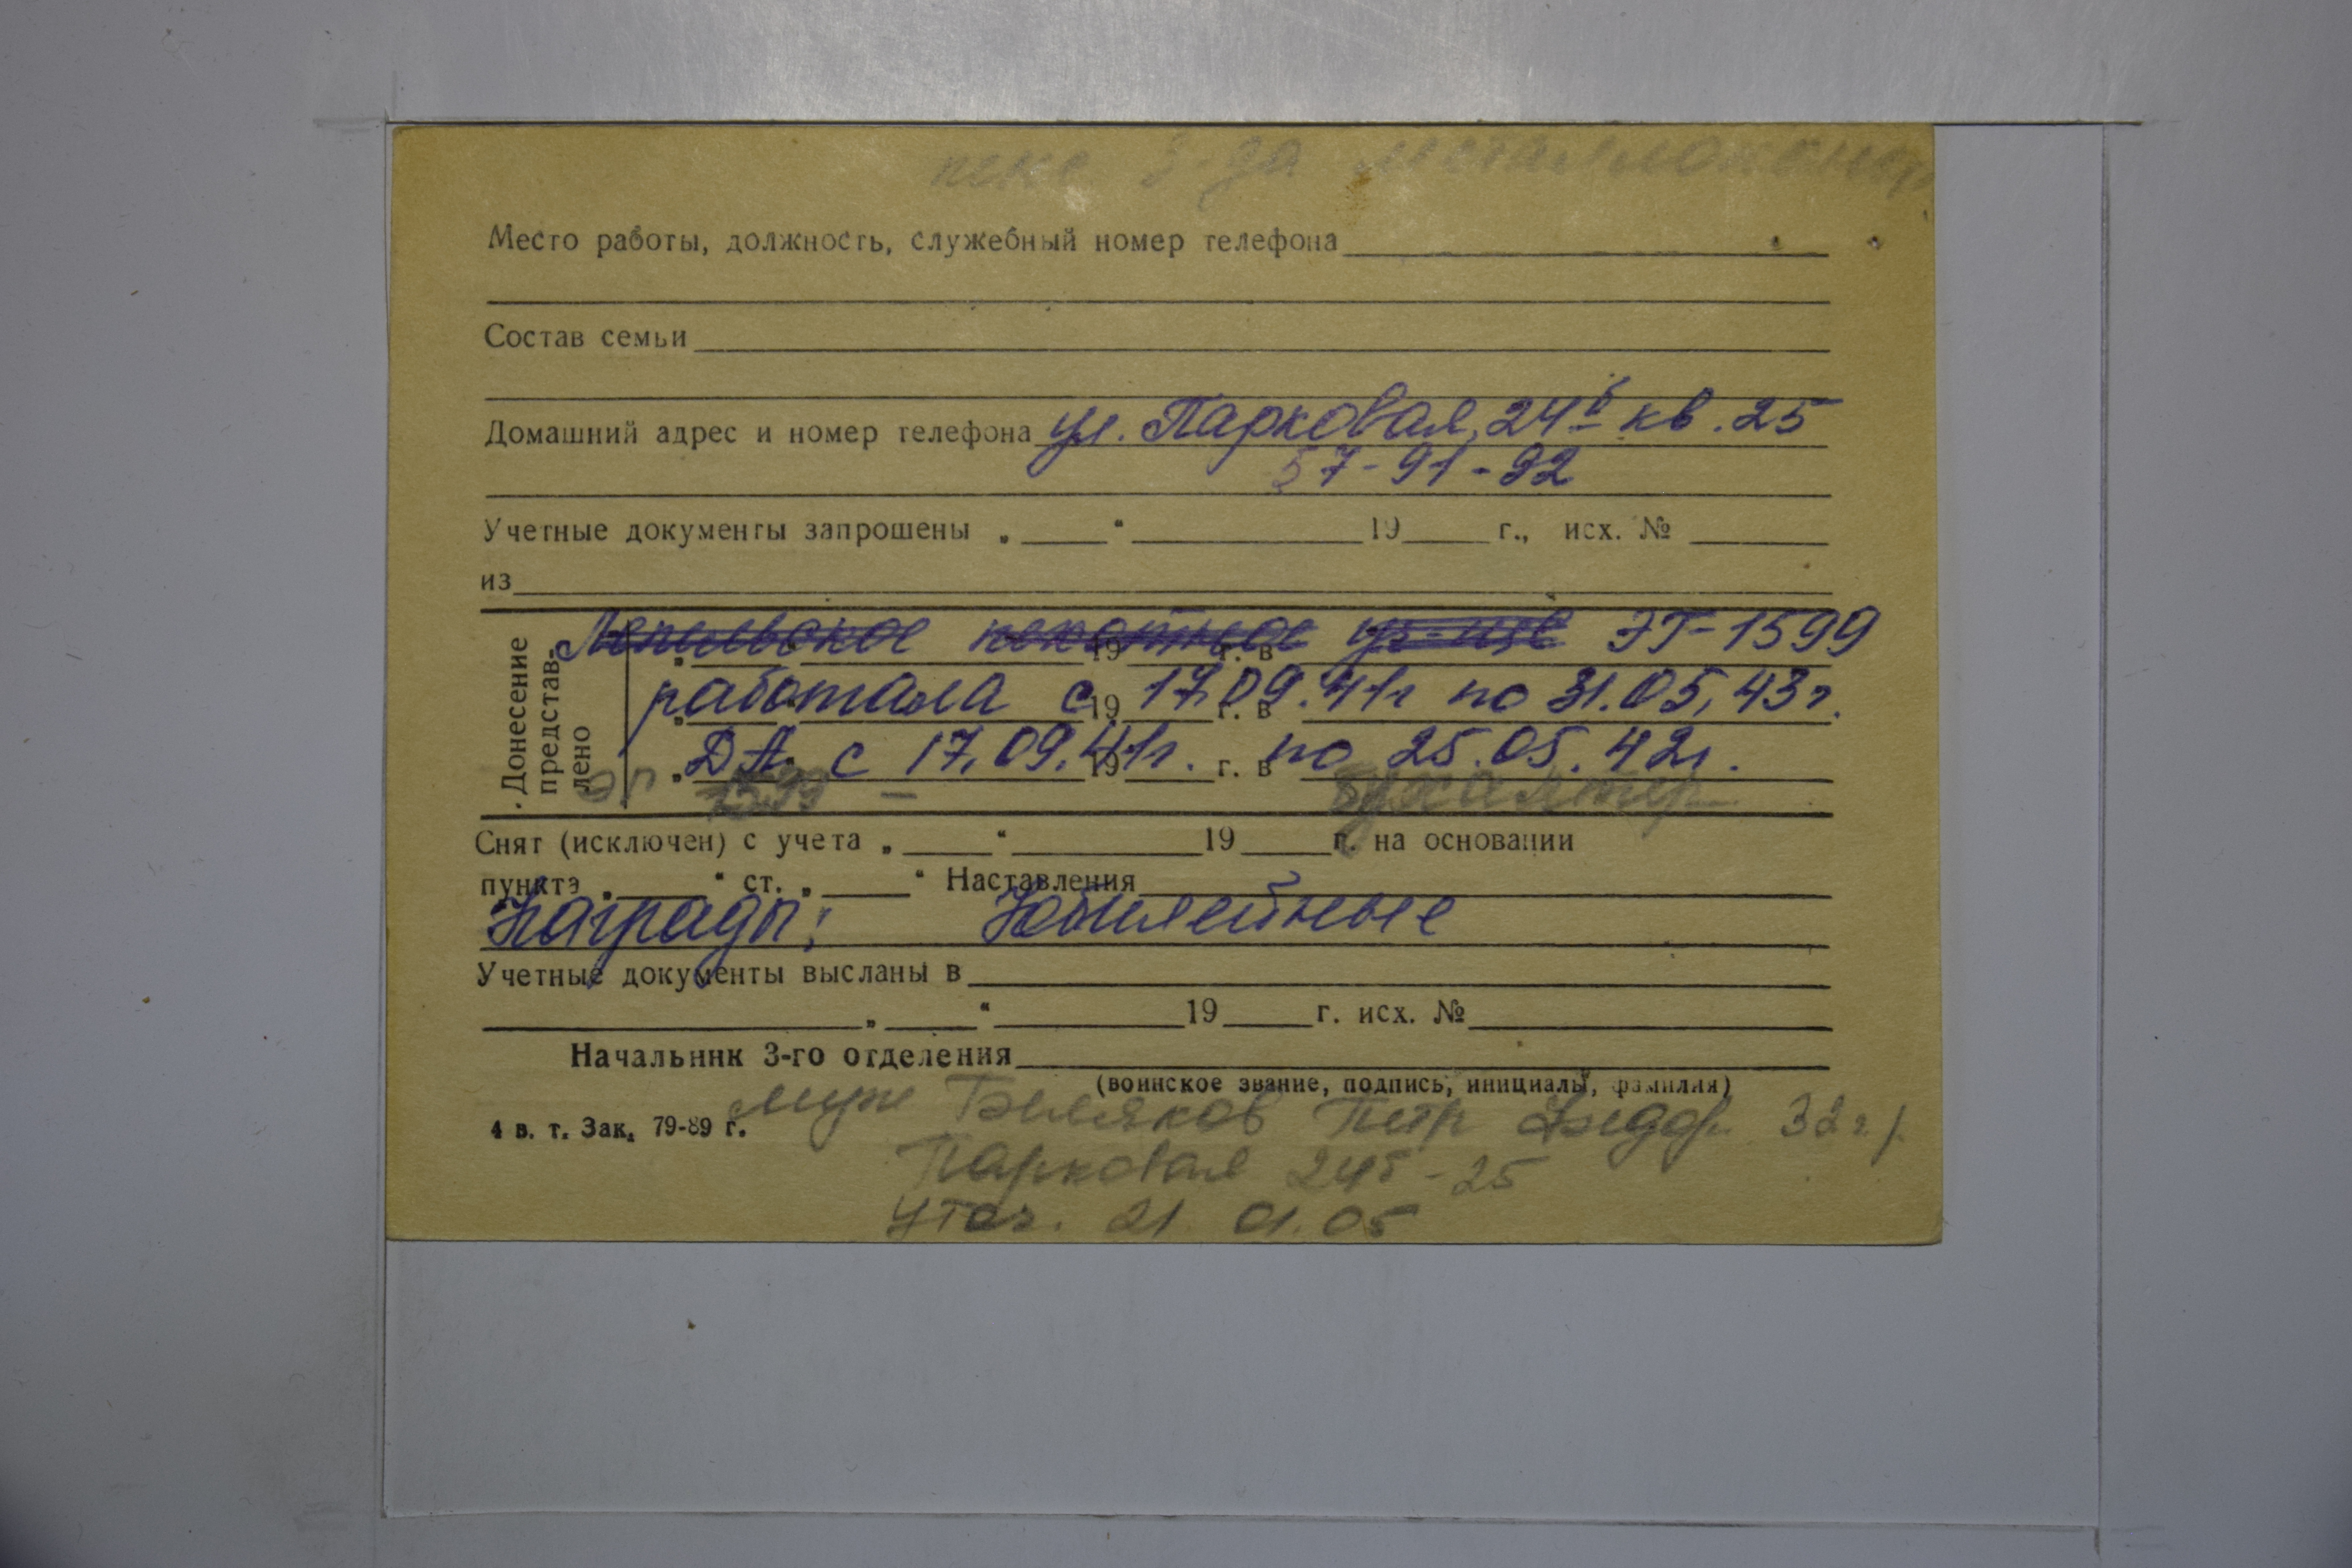 пенс. з-да металлоконстр
Место работы, должность, служебный номер телефона
Состав семьи
Домашний адрес и номер телефона ул. Парковая, 24б кв. 25
57-91-92
Учетные документы запрошены „ “ 19 г., исх. №
из
Донесение представ-лено
Лепельское пехотное уч-ще ЭГ-1599
„ “ 19 г. в
работала с 17.09.41г по 31.05.43г.
„ “ 19 г. в
ДА с 17.09.41г. по 25.05.42г.
„ “ 19 г. в
ЭГ 1599 – бухгалтер
Снят (исключен) с учета „ “ 19 г. на основании
пункта „ “ ст. „ “ Наставления
Награды: Юбилейные
Учетные документы высланы в
„ “ 19 г. исх. №
Начальник 3-го отделения
(воинское звание, подпись, инициалы, фамилия)
4 в. т. Зак. 79-89 г.
муж Петр 32 г.
Парковая 24б-25
уточ. 21.01.05